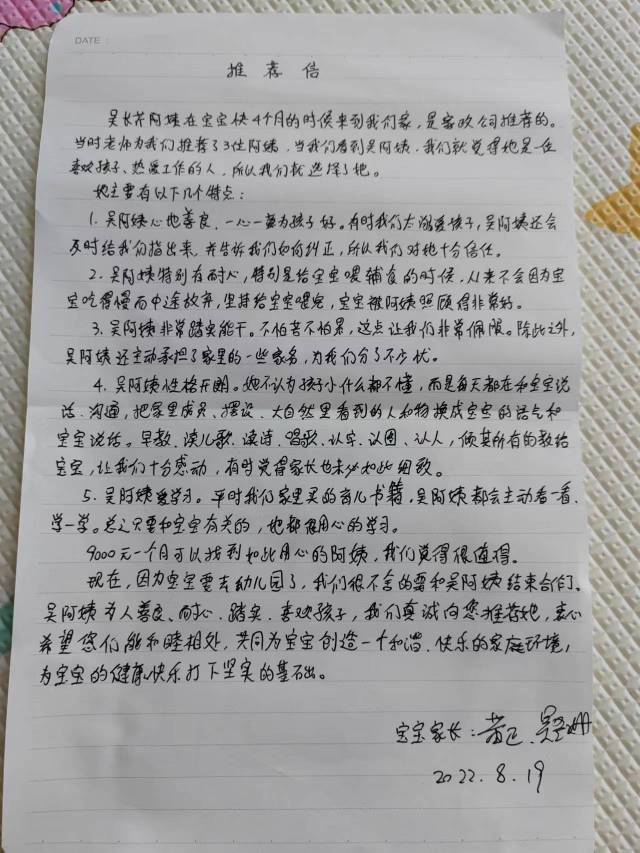 DATE
推荐信
吴长芹阿姨在宝宝快4个月的时候来到我们家，是家政公司推荐的。
当时老师为我们推荐了3位阿姨，当我们看到吴阿姨，我们就觉得她是一位
喜欢孩子、热爱工作的人，所以我们就选择了她。
她主要有以下几个特点：
1. 吴阿姨心地善良，一心一意为孩子好。有时我们太溺爱孩子，吴阿姨还会
及时给我们指出来，并告诉我们如何纠正，所以我们对她十分信任。
2. 吴阿姨特别有耐心，特别是给宝宝喂辅食的时候，从来不会因为宝
宝吃得慢而中途放弃，坚持给宝宝喂完，宝宝被阿姨照顾得非常好。
3. 吴阿姨非常踏实能干。不怕苦不怕累，这点让我们非常佩服。除此之外，
吴阿姨还主动承担了家里的一些家务，为我们分了不少忧。
4. 吴阿姨性格开朗。她不认为孩子小什么都不懂，而是每天都在和宝宝说
话、沟通，把家里成员、摆设、大自然里看到的人和物换成宝宝的语气和
宝宝说话。早教、读儿歌、读诗、唱歌、认字、认图、认人，倾其所有的教给
宝宝，让我们十分感动，有时觉得家长也未必如此细致。
5. 吴阿姨爱学习。平时我们家里买的育儿书籍，吴阿姨都会主动看一看、
学一学。总之只要和宝宝有关的，她都很用心的学习。
9000元一个月可以找到如此用心的阿姨，我们觉得很值得。
现在，因为宝宝要去幼儿园了，我们很不舍的要和吴阿姨结束合作了。
吴阿姨为人善良、耐心、踏实、喜欢孩子，我们真诚向您推荐她，衷心
希望您们能和睦相处，共同为宝宝创造一个和谐、快乐的家庭环境，
为宝宝的健康快乐打下坚实的基础。
宝宝家长：
2022.8.19